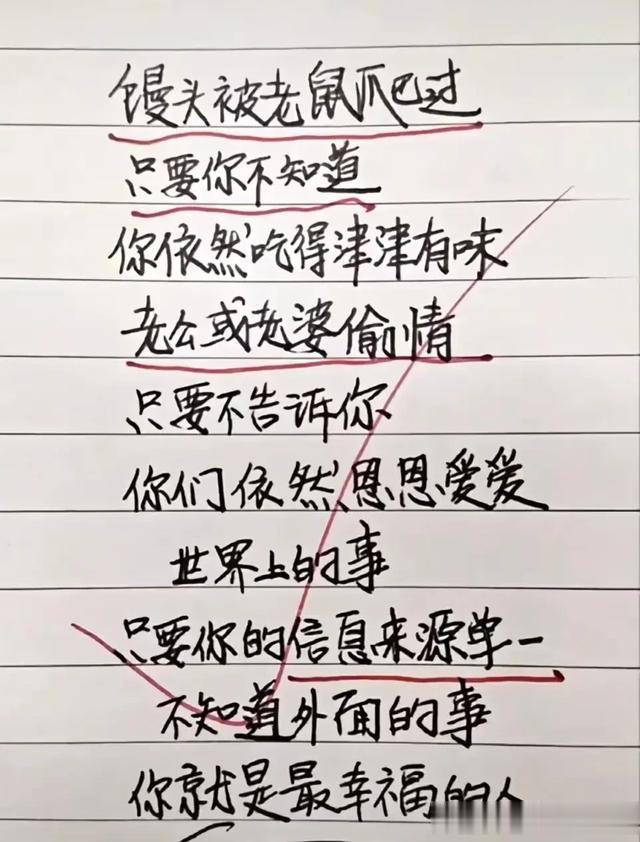 馒头被老鼠爪巴过
只要你不知道
你依然吃得津津有味
老公或老婆偷情
只要不告诉你
你们依然恩恩爱爱
世界上的事
只要你的信息来源单一
不知道外面的事
你就是最幸福的人